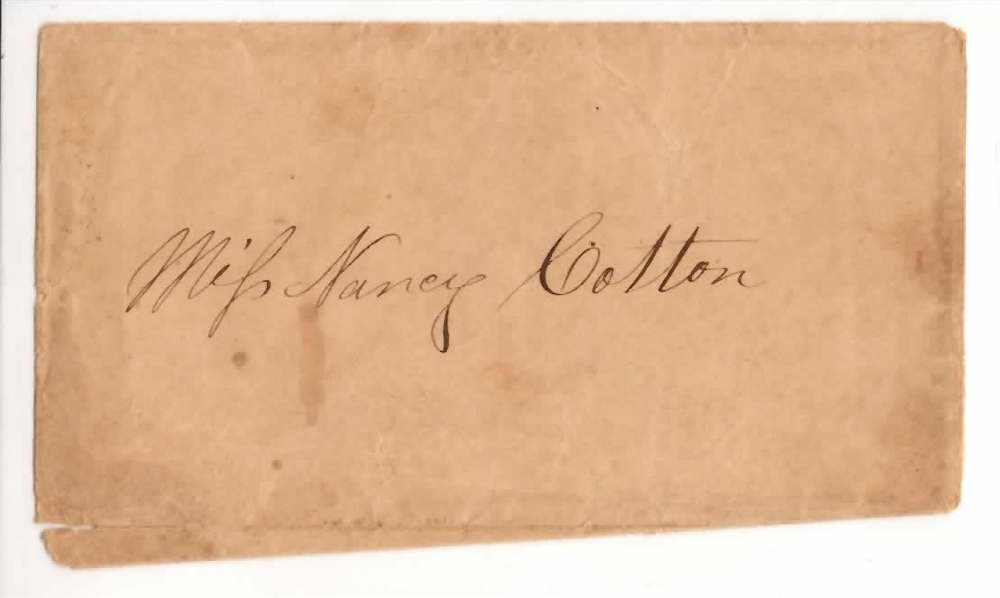 Miſs Nancy Cotton